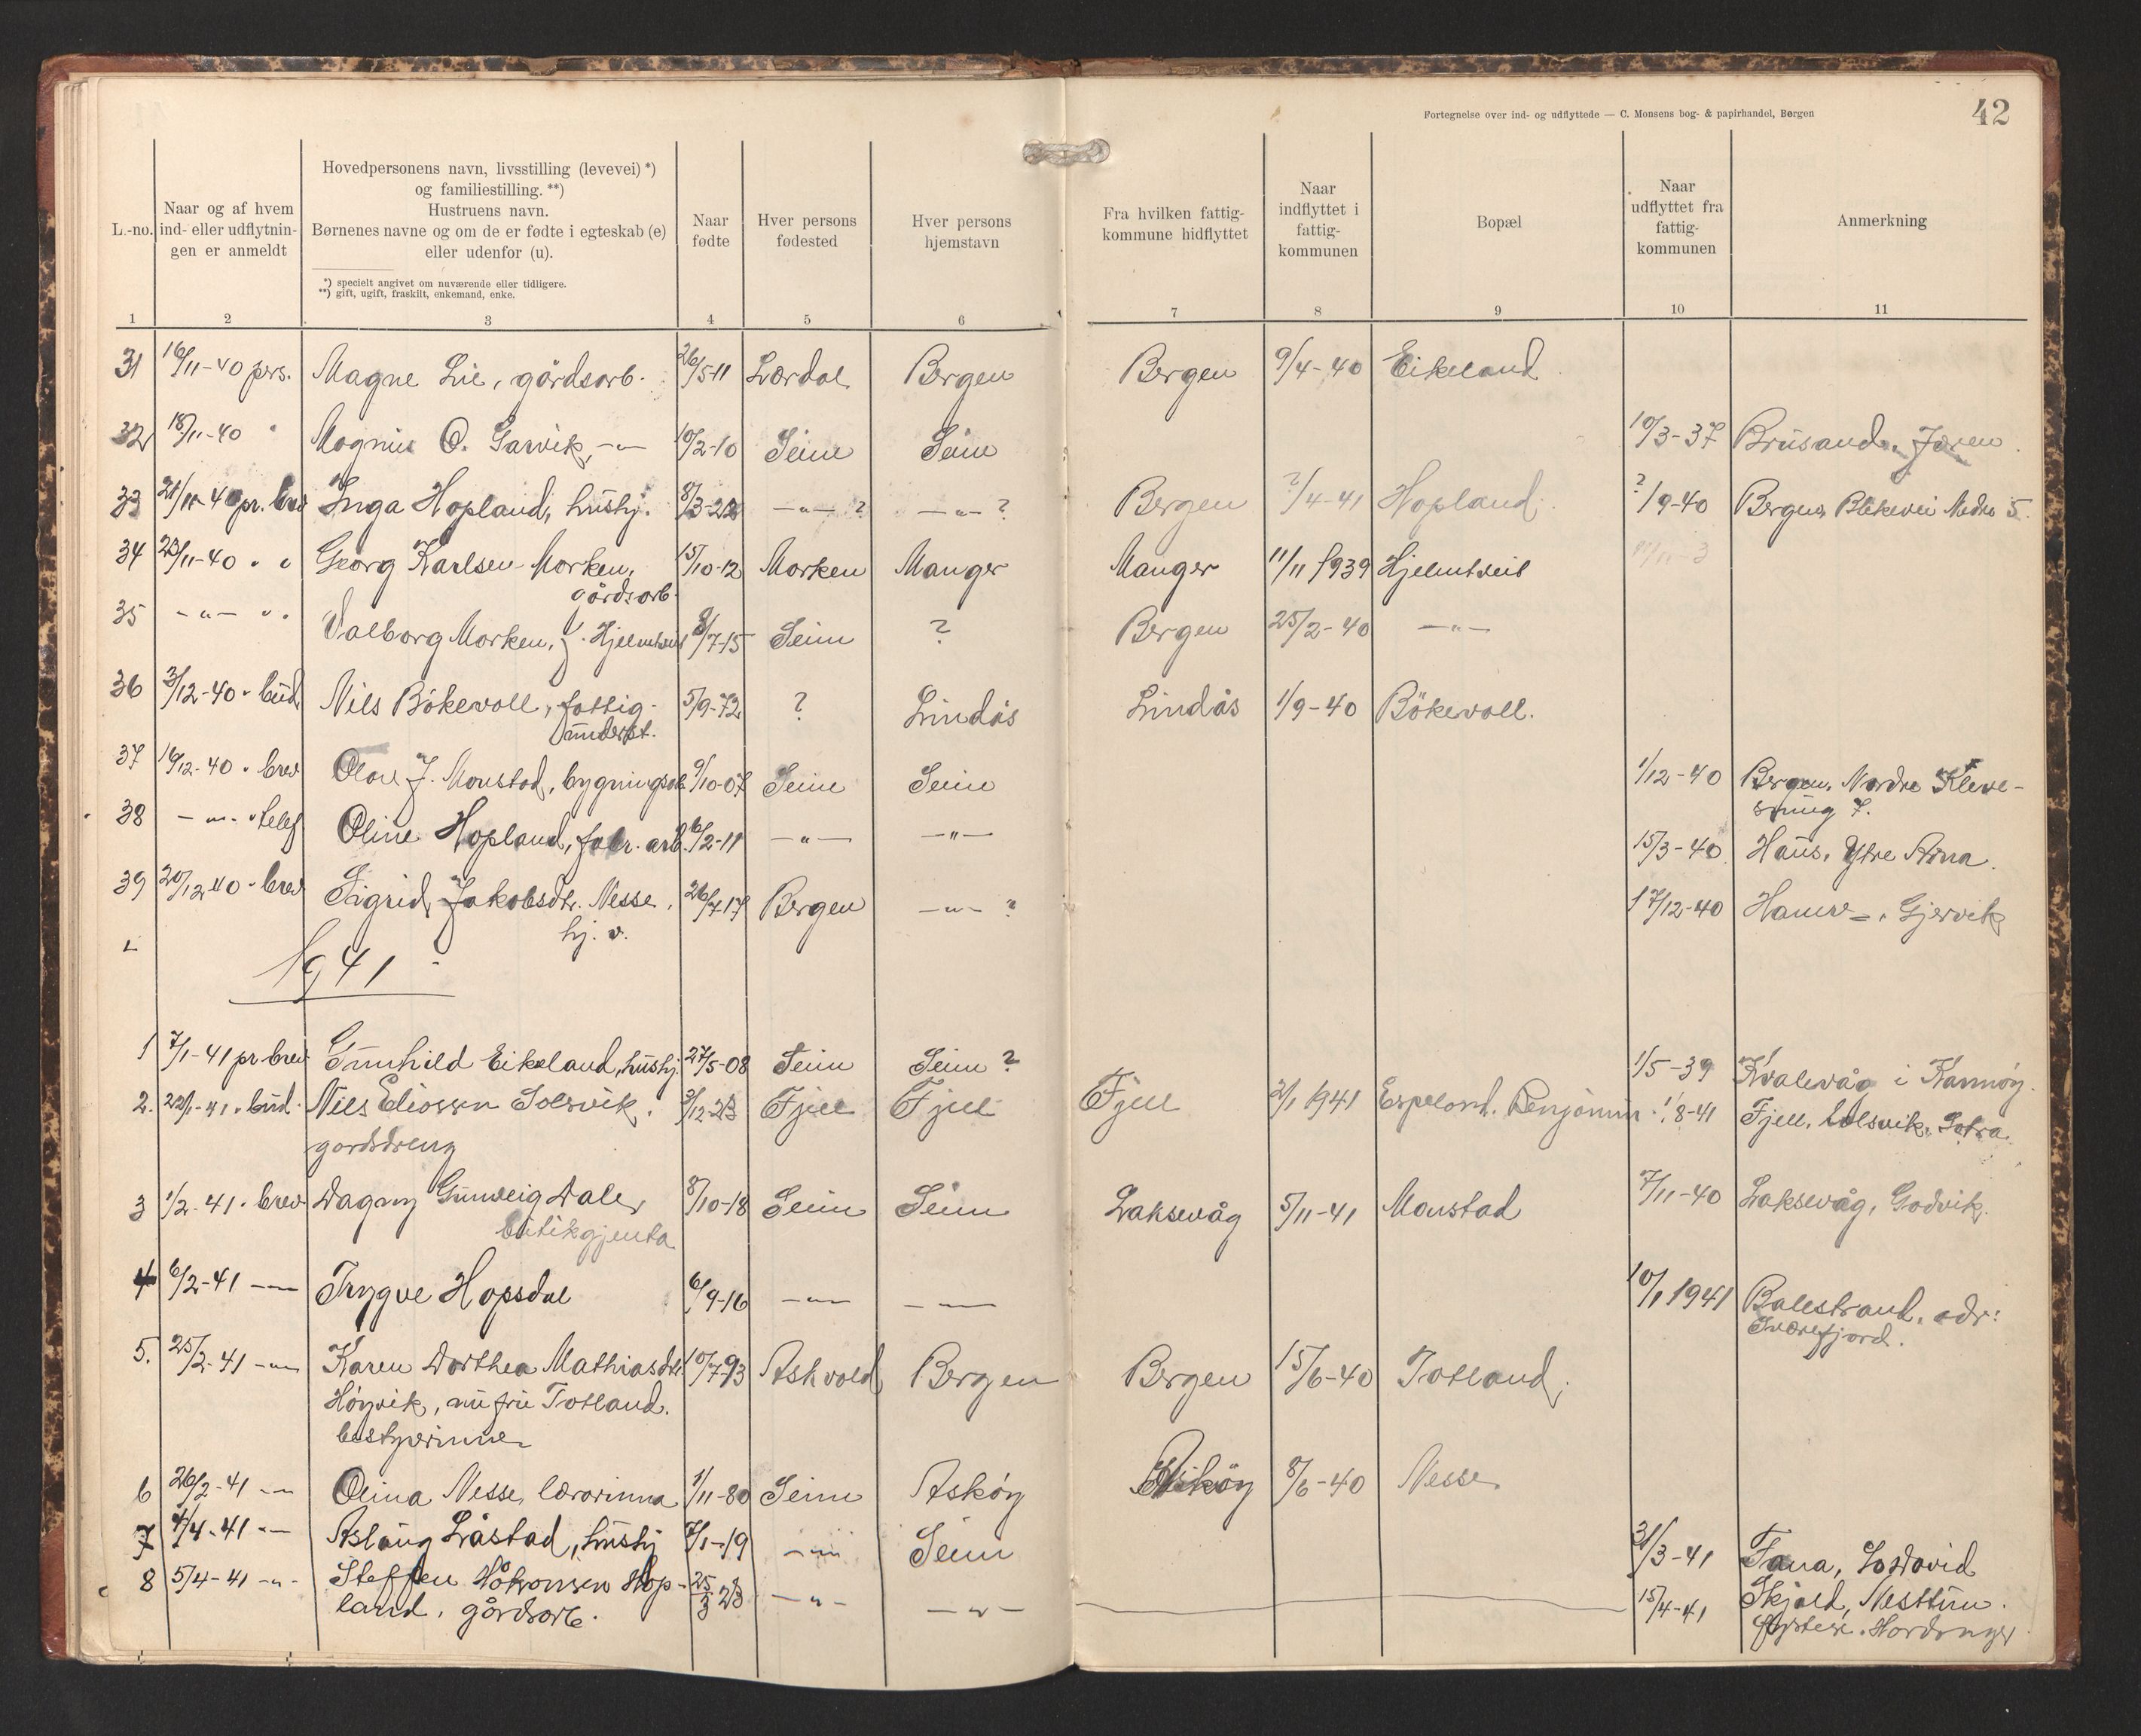 Fortegnelse over ind- og udflyttede — C. Monsens bog- & papirhandel, Bergen
42
L.-no.
Naar og af hvem
ind- eller udflytnin-
gen er anmeldt
Hovedpersonens navn, livsstilling (levevei) *)
og familiestilling. **)
Hustruens navn.
Børnenes navne og om de er fødte i egteskab (e)
eller udenfor (u).
*) specielt angivet om nuværende eller tidligere.
**) gift, ugift, fraskilt, enkemand, enke.
Naar
fødte
Hver persons
fødested
Hver persons
hjemstavn
Fra hvilken fattig-
kommune hidflyttet
Naar
indflyttet i
fattig-
kommunen
Bopæl
Naar
udflyttet fra
fattig-
kommunen
Anmerkning
1 2 3 4 5 6 7 8 9 10 11
31 16/11-40 pers. Magne Lie, gårdsarb. 26/5-11 Lærdal Bergen Bergen 9/4-40 Eikeland
32 18/11-40 " Magnus O. Garvik, -"- 10/2-10 Seim Seim 10/3-37 Brusand, Jæren.
33 21/11-40 pr. brev Inga Hopland, hushj. 8/3-22 -"- ? -"- ? Bergen ?/4-41 Hopland ?/9-40 Bergen, Blekevei Nedre 5.
34 23/11-40 " " Georg Karlsen Morken, 15/10-12 Morken Manger Manger 11/11 1939 Hjelmtveit
gårdsarb.
35 -"- " " Valborg Morken, f. Hjelmtveit 8/7-15 Seim ? Bergen 25/2-40 -"-
36 3/12-40 " bud Nils Bökevoll, fattig- 5/9-72 ? Lindås Lindås 1/9-40 Bökevoll.
underst.
37 16/12-40 " brev Olav J. Monstad, bygningsarb 9/10-07 Seim Seim 1/12-40 Bergen, Nordre Kleve-
smug 7.
38 -"- " telef Oline Hopland, fabr. arb. 6/2-11 -"- -"- 15/3-40 Haus, Ytre Arna.
39 20/12 40 " brev Sigrid Jakobsdtr. Nesse, 26/7-17 Bergen -"- ? 17/12-40 Hamre, Gjervik
hj. v.
1941
1 7/1-41 pr brev Gunhild Eikeland, hushj. 27/5-08 Seim Seim ? 1/5-39 Kvalevåg i Karmöy.
2. 22/1-41 " bud. Nils Eliassen Solsvik, 3/12-23 Fjell Fjell Fjell 2/1 1941 Espeland. Benjamin 1/8-41 Fjell, Solsvik, Sotra.
gardsdreng
3 1/2-41 " brev Dagny Gunveig Dale, 8/10-18 Seim Seim Laksevåg 5/11-41 Monstad 7/11-40 Laksevåg, Godvik.
butikgjenta
4 6/2-41 -"- Trygve Hopsdal 6/9-16 -"- -"- 10/1 1941 Balestrand, adr:
Sværefjord.
5. 25/2-41 -"- Karen Dorthea Mathiasdtr. 10/7-93 Askvold Bergen Bergen 15/6-40 Totland
Höyvik, nu fru Totland.
bestyrerinne
6 26/2-41 -"- Olina Nesse, lærarinna 1/11-80 Seim Asköy Asköy 8/6-40 Nesse
7 4/4-41 -"- Aslaug Låstad, hushj 7/1-19 -"- Seim 31/3-41 Fana,
8 5/4-41 -"- Steffen Håkonsen Hop- 25/3 23 -"- -"- 15/4-41 Skjold, Nesttun.
land, gårdsarb. Hardanger